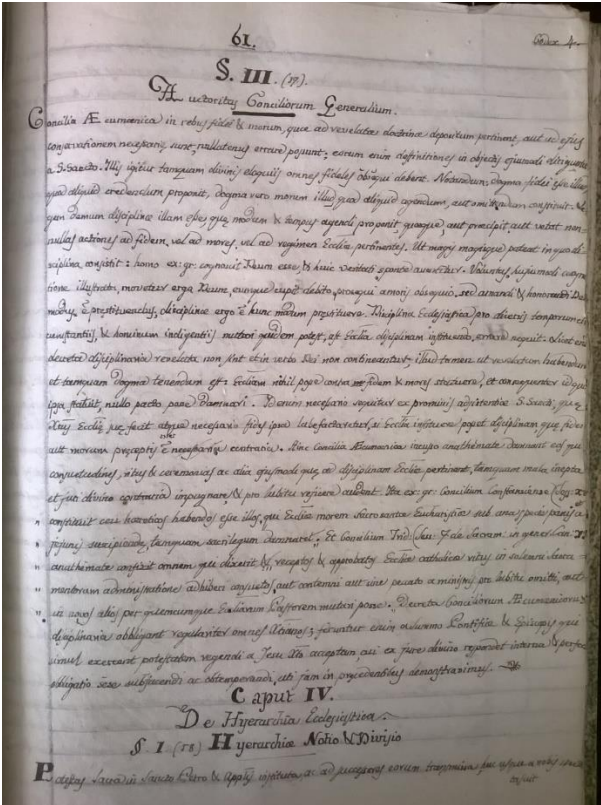 61.
Codex 4.
§. III. (17).
Auctoritas Conciliorum Generalium.
Concilia Æcumenica in rebus fidei & morum, quæ ad revelatæ doctrinæ depositum pertinent, aut ad ejus
conservationem necessariæ sunt, nullatenus errare possunt; eorum enim deffinitiones in objectis ejusmodi
a S. Sancto. Illis igitur tamquam divinis eloquiis omnes fideles obsequi debent. Notandum: dogma fidei esse illud,
quod aliquid credendum proponit, dogma vero morum illud, quod aliquid agendum, aut omittendum constituit:
gem demum disciplinæ illam esse, quæ modum & tempus agendi proponit quæque, aut præcipit, aut vetat non-
nullas actiones ad fidem, vel ad mores, vel ad regimen Ecclæ pertinentes. Ut magis magisque pateat in quo di-
sciplina consistit: homo ex: gr: cognovit Deum esse, & huic veritati sponte Voluntas hujusmodi cogni-
tione illustrata, movetur erga Deum, eumque cupit debito, prosequi amoris obsequio, sed amandi & honorandi Deum
modus, est præstituendus, disciplinæ ergo est hunc modum præstituere. Disciplina Ecclesiastica pro diversis temporum cir-
cumstantiis, & hominum indigentiis mutari quidem potest, ast Ecclia disciplinam instituendo, errare nequit: & licet
decreta disciplinaria revelata non sint et in verbo Dei non contineantur, illud tamen ut revelatum habendum
et tamquam dogma tenendum est: Eccliam nihil posse contra fidem & mores statuere, et consequenter id quod
ipsa statuit, nullo pacto posse damnari. Id enim necessario sequitur ex promissis adsistentiæ S. Sancti, quam
Xtus Eccliæ suæ fecit atque necessario fides ipsa labefactaretur, si Ecclia instituere posset disciplinam quæ fidei
aut morum præceptis est necessario contraria. Hinc Concilia Æcumenica incusso anathemate damnant eos qui
consuetudines, ritus & ceremonias ac alia ejusmodi quæ ad disciplinam Ecclæ pertinent, tamquam mala, inepta,
et juri divino contraria impugnare & pro lubitu rejicere audent. Ita ex: gr: Concilium Constansiense
constituit ceu hæreticos habendos esse illos, qui Eccliæ morem sacrosanctæ Eucharistiæ sub una specie panis a
jejuni suscipiendæ, tamquam sacrilegum damnaret. Et Concilium Trid: Sess: 7 de Sacram: in gener: Can:
anathemate confixit omnem qui dixerit & receptos & approbatos Ecclæ catholicæ ritus in solemni Sacra-
mentorum administratione adhiberi consuetos, aut contemni aut sine peccato a ministris pro lubitu omitti, aut
in novos alios per quemcumque Ecclæarum Pastorem mutari posse. Decreta Conciliorum Æcumenicorum
disciplinaria obligant regulariter omnes Xtianos; feruntur enim a Summo Pontifice & Episcopis qui
simul exercent potestatem regendi a Jesu Xto acceptam, cui ex jure divino respondet interna & perfecta
obligatio sese subjiciendi ac obtemperandi, uti jam in præcedentibus demonstravimus.
Caput IV.
De Hyerarchia Ecclesiastica.
§. I (18) Hyerarchiæ Notio & Divisio
Potestas Sacra in Sancto Petro & Applis instituta, ac ad successores eorum transmissa